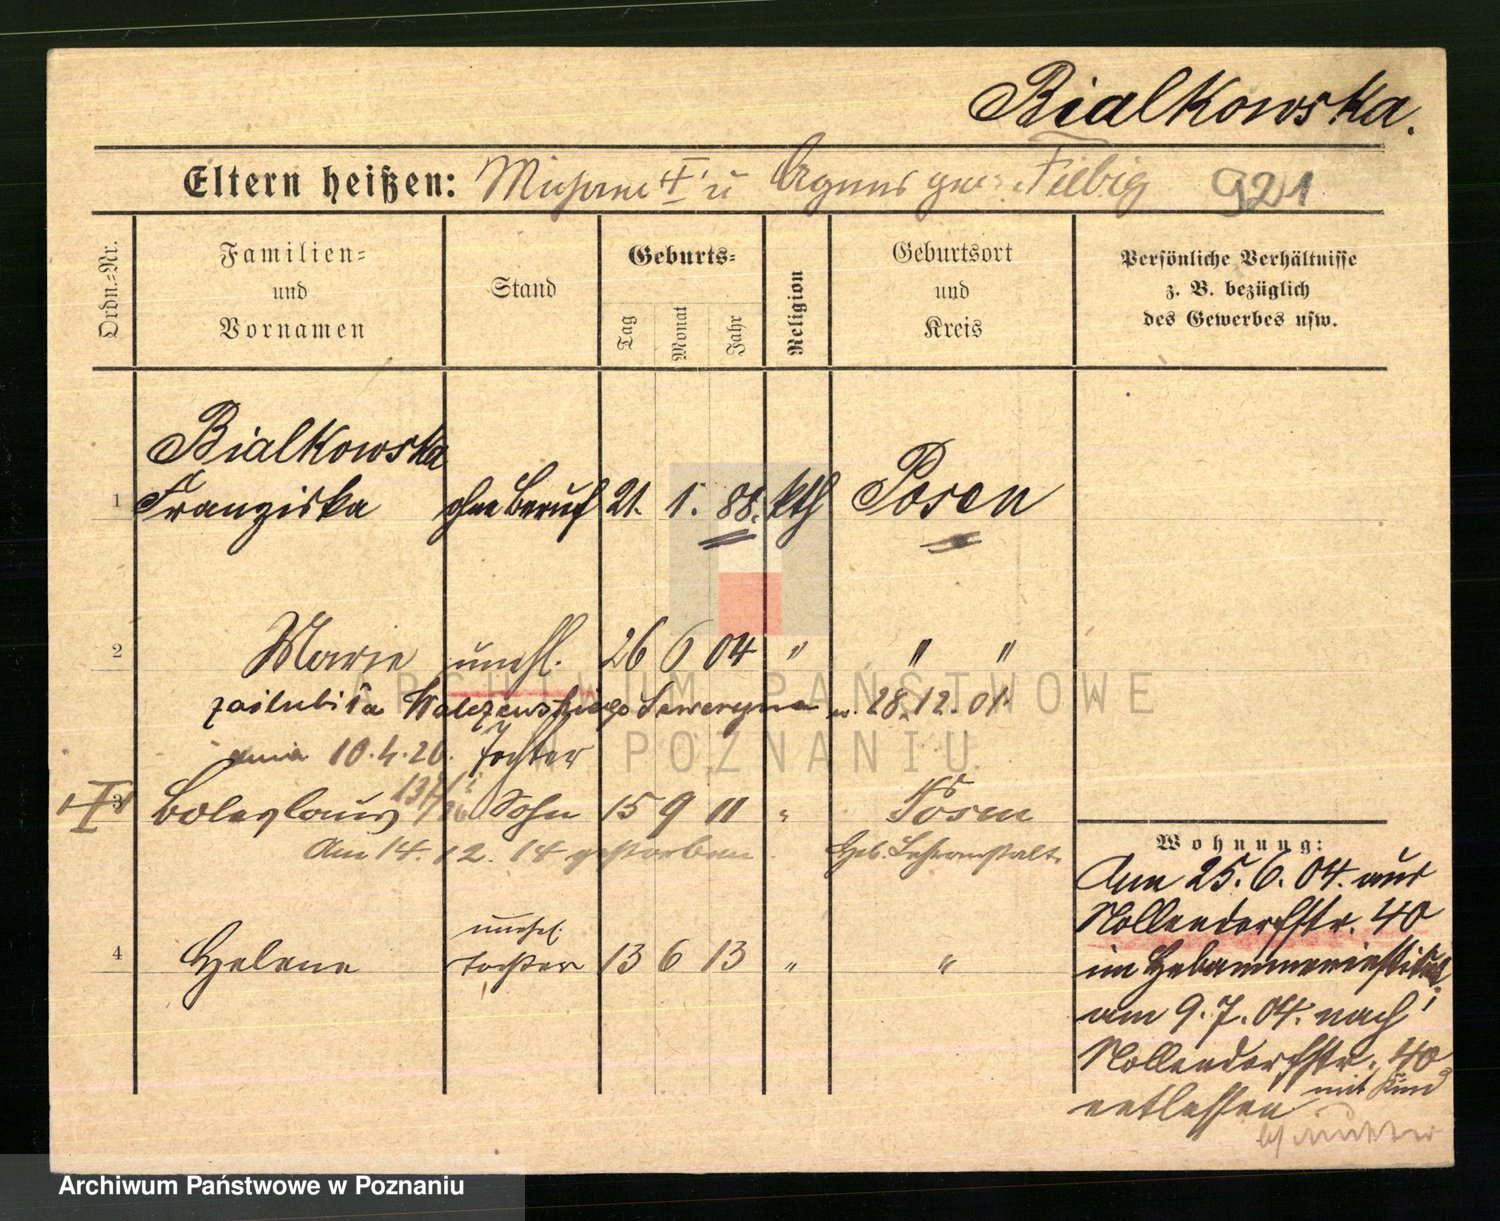 Bialkowska.
Eltern heißen: Michael u Agnes geb. Fiebig 921
Ordn.-Nr.
Familien-
und
Vornamen
Stand
Geburts-
Tag
Monat
Jahr
Religion
Geburtsort
und
Kreis
Persönliche Verhältnisse
z. B. bezüglich
des Gewerbes usw.
Bialkowska
1 Franziska ohne Beruf 21. 1. 88. kth Posen
2 Marie unehl. 26 6 04 " " "
zaślubiła Walczewskiego Seweryna u. 28.12.01.
dnia 10.4.20. Tochter
3 Boleslaus Sohn 15 9 11 " Posen
Am 14. 12. 14 gestorben. Heb. Lehranstalt
unehel.
4 Helene Tochter 13 6 13 " "
Wohnung:
Am 25.6.04. aus
Nollendorfstr. 40
im Hebammeninstitut
am 9.7.04. nach
Nollendorfstr. 40
mit Kind
entlassen
ARCHIWUM PAŃSTWOWE
W POZNANIU
Archiwum Państwowe w Poznaniu